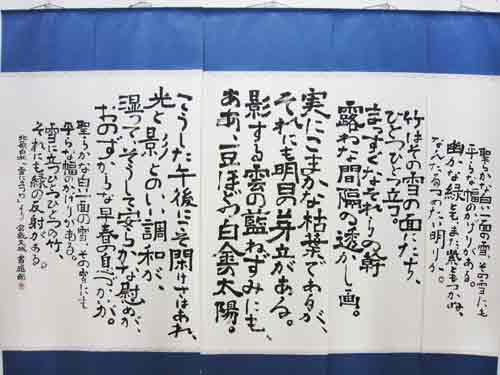 聖らかな白い一面の雪、その雪にも
平らな幅のかげりがある。
幽かな緑とも、また、紫ともつかぬ、
なんたるつめたい明りか。
竹はその雪の面にたち、
ひとつひとつ立つ。
まつすぐなそれらの幹
露わな間隔の透かし画。
実にこまかな枯葉であるが、
それにも明日の芽立がある。
影する雲の藍ねずみにも、
ああ、豆ほどの白金の太陽。
こうした午後にこそ閑けさはあれ、
光と影とのいい調和が、
湿って、そうして安らかな慰めが、
おのずからな早春の息づかいが。
聖らかな白い一面の雪、その雪にも
平らな幅のかげりがある。
雪に立つひとつひとつの竹、
それにも緑の反射がある。